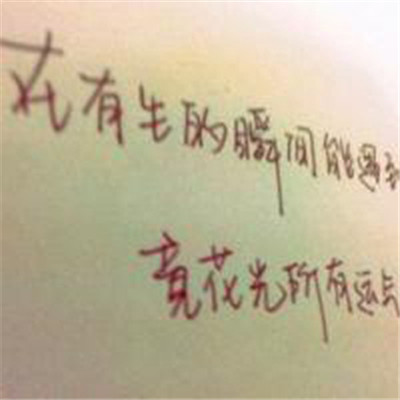 在有生的瞬间能遇到
竟花光所有运气